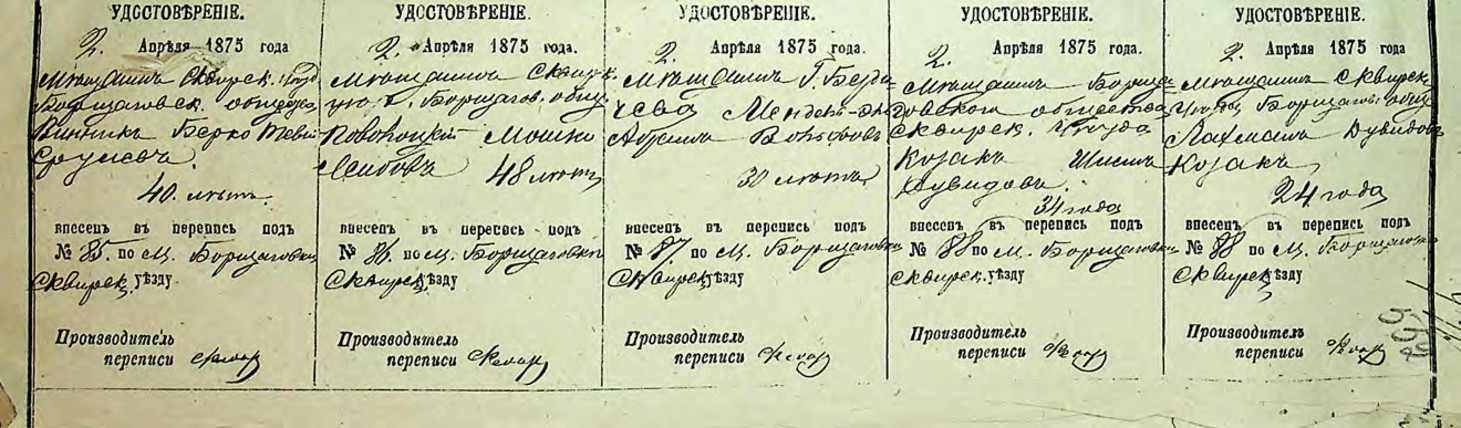 УДОСТОВѢРЕНІЕ.
2. Апрѣля 1875 года
Мѣщанинъ Сквирск.
Борщаговск. общества
Винникъ Берко
Срулевъ.
40. лѣтъ.
внесенъ въ перепись подъ
№ 85. по м. Борщаговки
Сквирск. уѣзду
Производитель
переписи
УДОСТОВѢРЕНІЕ.
2. Апрѣля 1875 года.
Мѣщанинъ Сквир.
Борщагов. общ.
Мошко
Лейбовъ 48 лѣтъ
внесенъ въ перепись подъ
№ 86. по м. Борщаговки
Сквирск. уѣзду
Производитель
переписи
УДОСТОВѢРЕНІЕ.
2. Апрѣля 1875 года.
Мѣщанинъ Г. Берди-
чева Мендель-
Абрамъ Вольфовъ
30 лѣтъ
внесенъ въ перепись подъ
№ 87. по м. Борщаговки
Сквирск. уѣзду
Производитель
переписи
УДОСТОВѢРЕНІЕ.
2. Апрѣля 1875 года.
Мѣщанинъ Борща-
говского общества
Сквирск. уѣзда
Козакъ
Дувидовъ.
34 года
внесенъ въ перепись подъ
№ 88 по м. Борщаговки
Сквирск. уѣзду
Производитель
переписи
УДОСТОВѢРЕНІЕ.
2. Апрѣля 1875 года.
Мѣщанинъ Сквирск.
уѣзда Борщагов. общ.
Лахманъ Дувидовъ
Козакъ
24 года
внесенъ въ перепись подъ
№ 88 по м. Борщаговки
Сквирск. уѣзду
Производитель
переписи